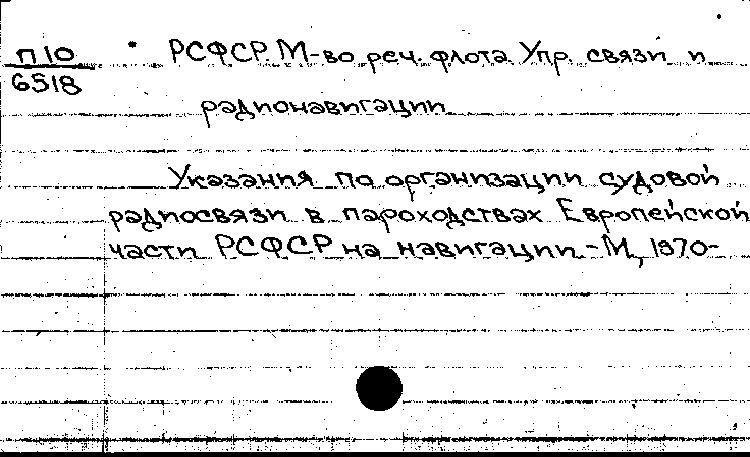 П10
6518
* РСФСР. М-во реч. флота. Упр. связи и
радионавигации
Указания по организации судовой
радиосвязи в пароходствах Европейской
части РСФСР на навигации. - М., 1970-